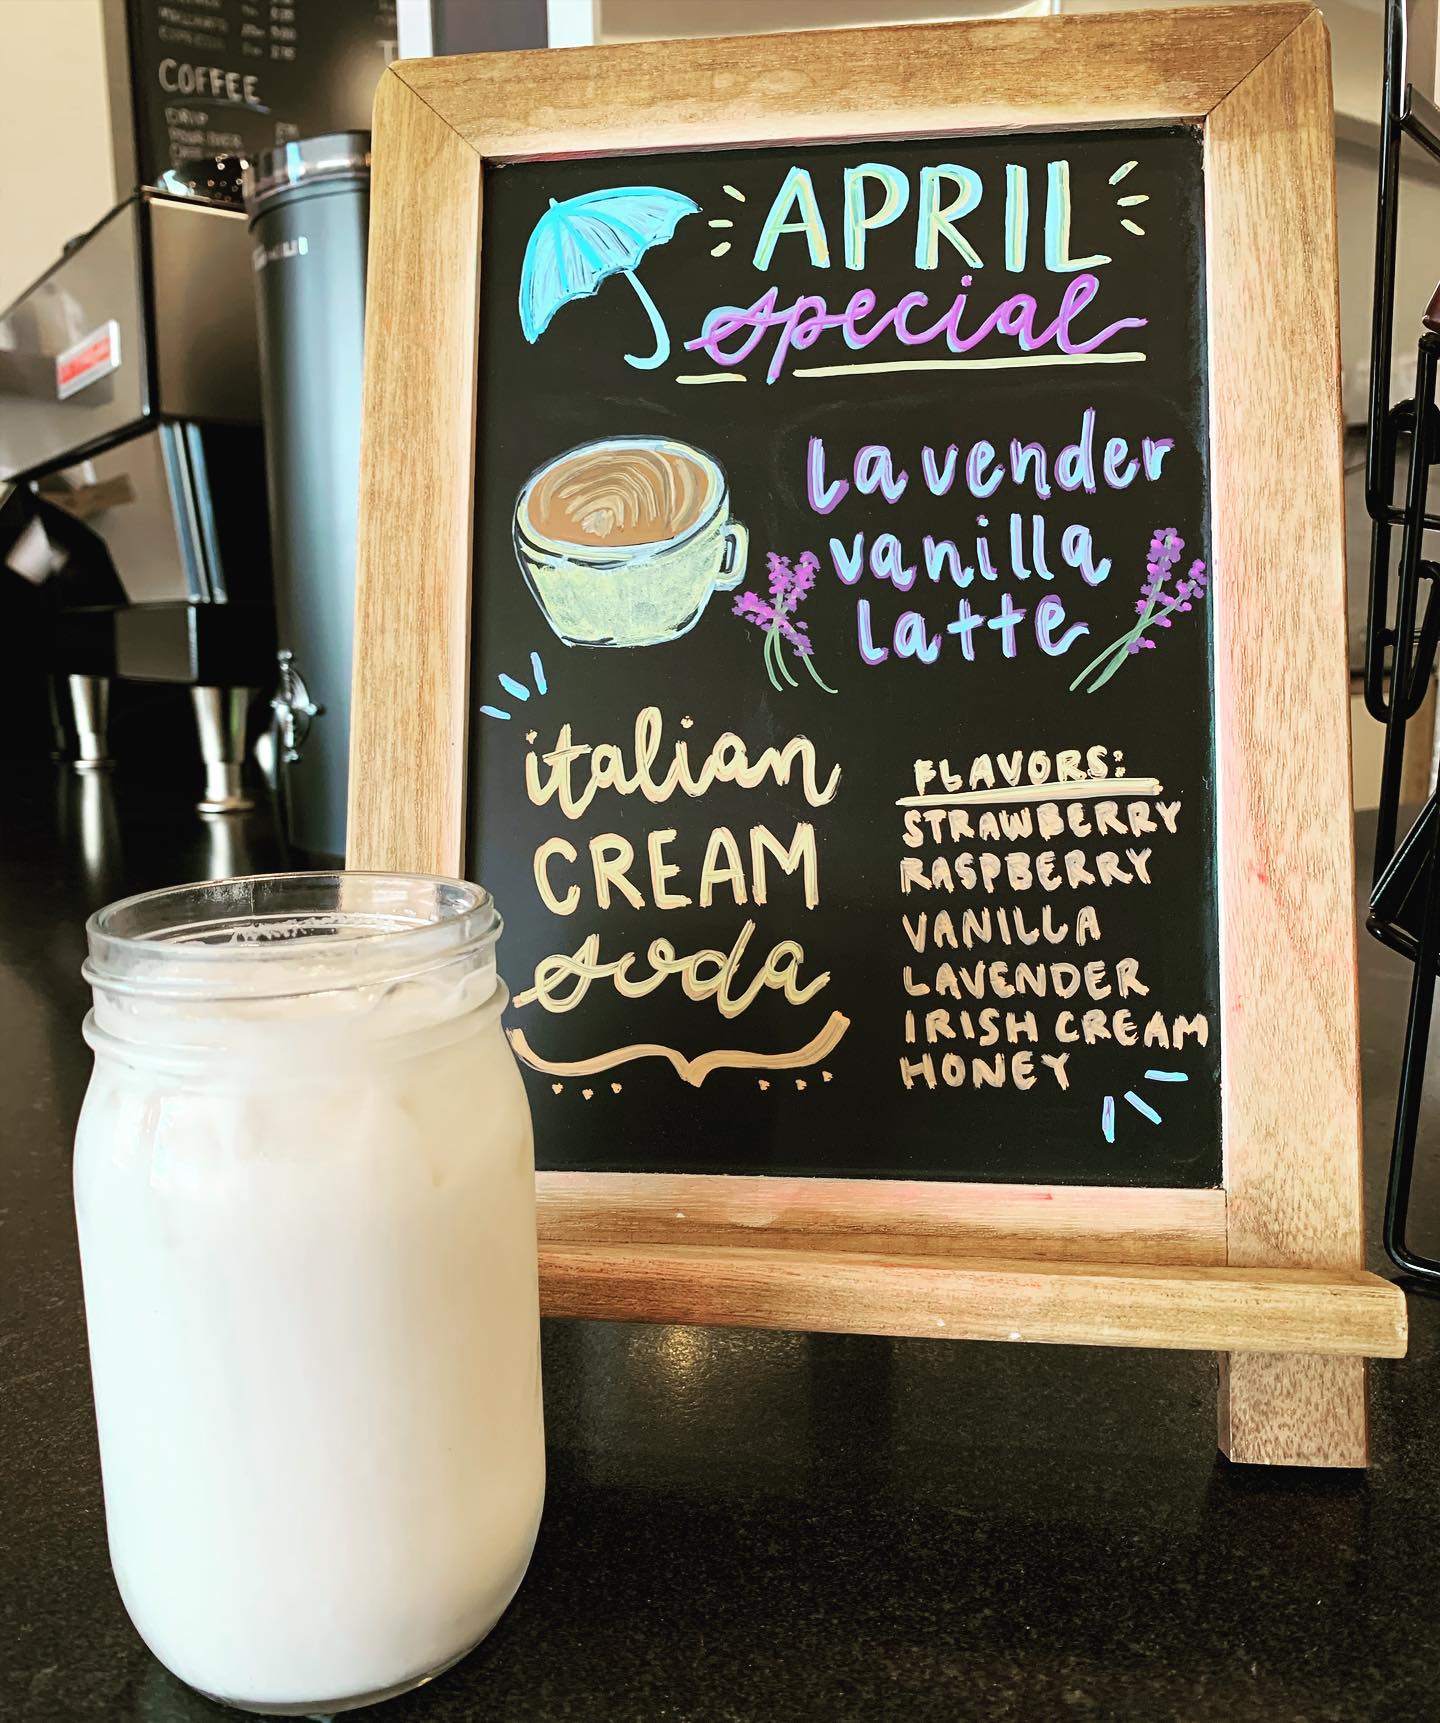 COFFEE
DRIP
POUR OVER
APRIL
special
lavender
vanilla
latte
italian
CREAM
soda
FLAVORS:
STRAWBERRY
RASPBERRY
VANILLA
LAVENDER
IRISH CREAM
HONEY